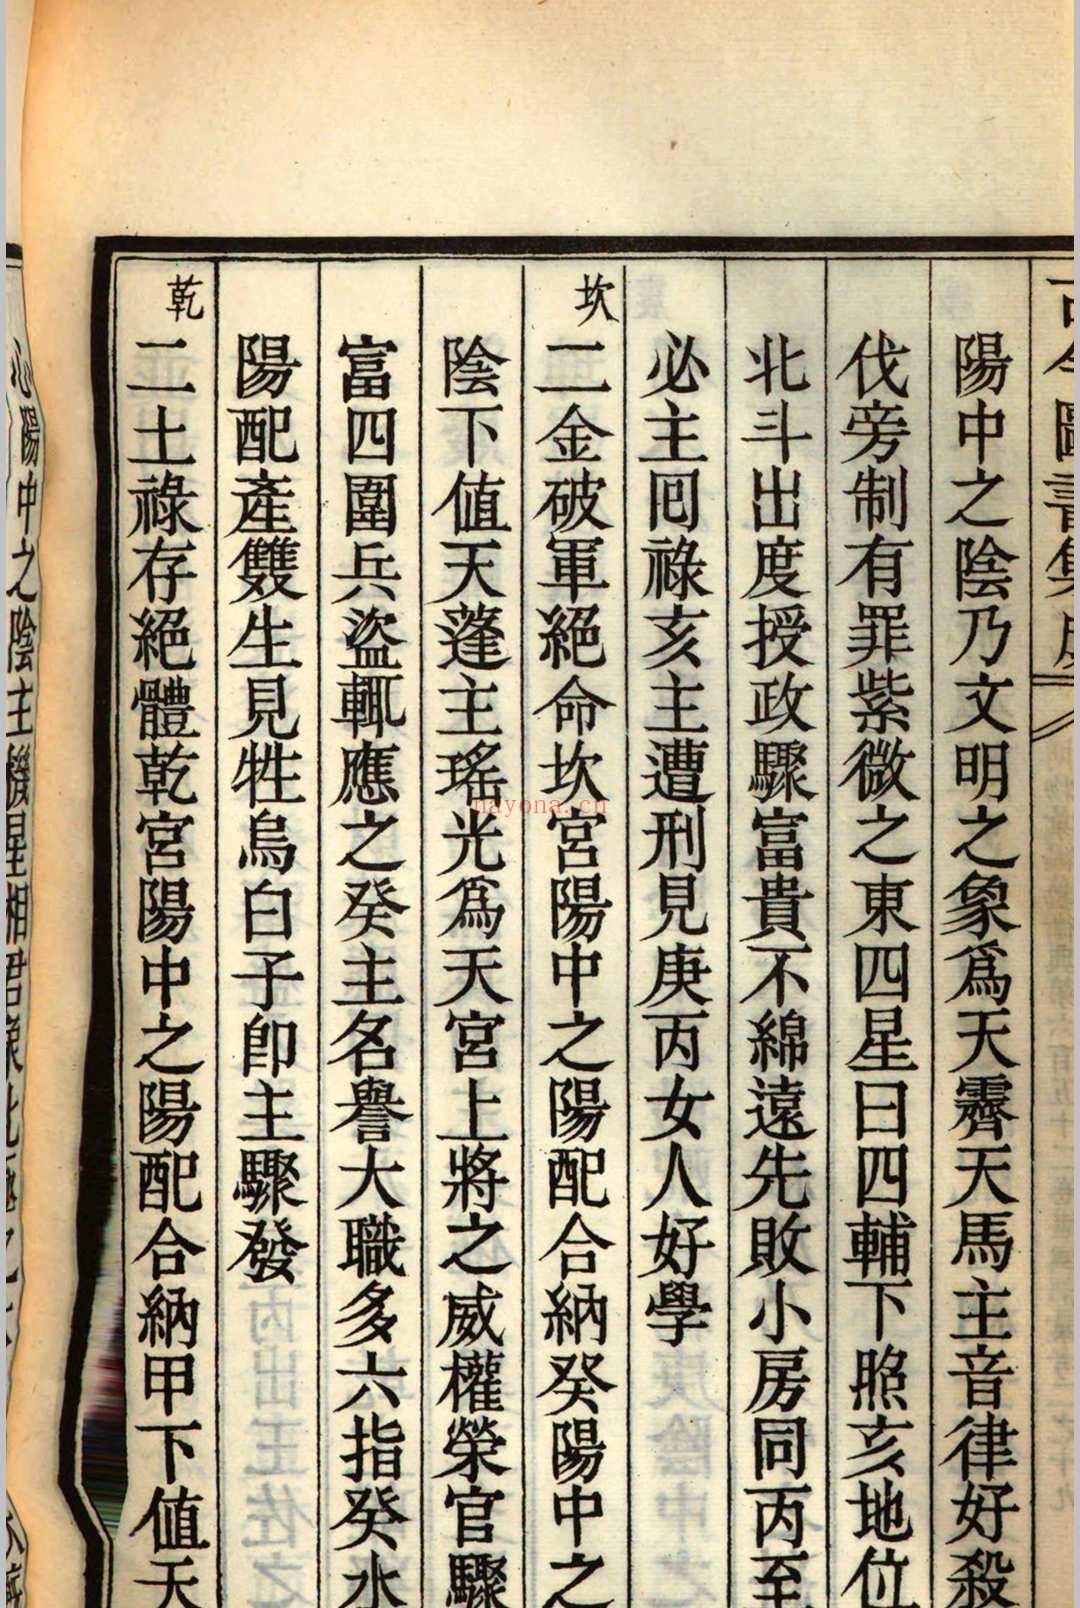 古今圖書集成
陽中之陰乃文明之象爲天霽天馬主音律好殺
伐旁制有罪紫微之東四星曰四輔下照亥地位
北斗出度授政驟富貴不綿遠先敗小房同丙至
必主囘祿亥主遭刑見庚丙女人好學
坎
二金破軍絕命坎宮陽中之陽配合納癸陽中之
陰下値天蓬主瑤光爲天宮上將之威權榮官驟
富四圍兵盜輒應之癸主名譽大職多六指癸水
陽配產雙生見牲烏白子卽主驟發
乾
二土祿存絕體乾宮陽中之陽配合納甲下値天
心陽中之陰主機
nayona.cn